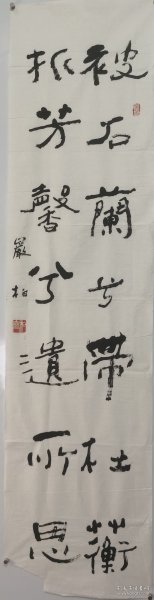 被石蘭兮帶杜蘅
折芳馨兮遺所思
嚴柏